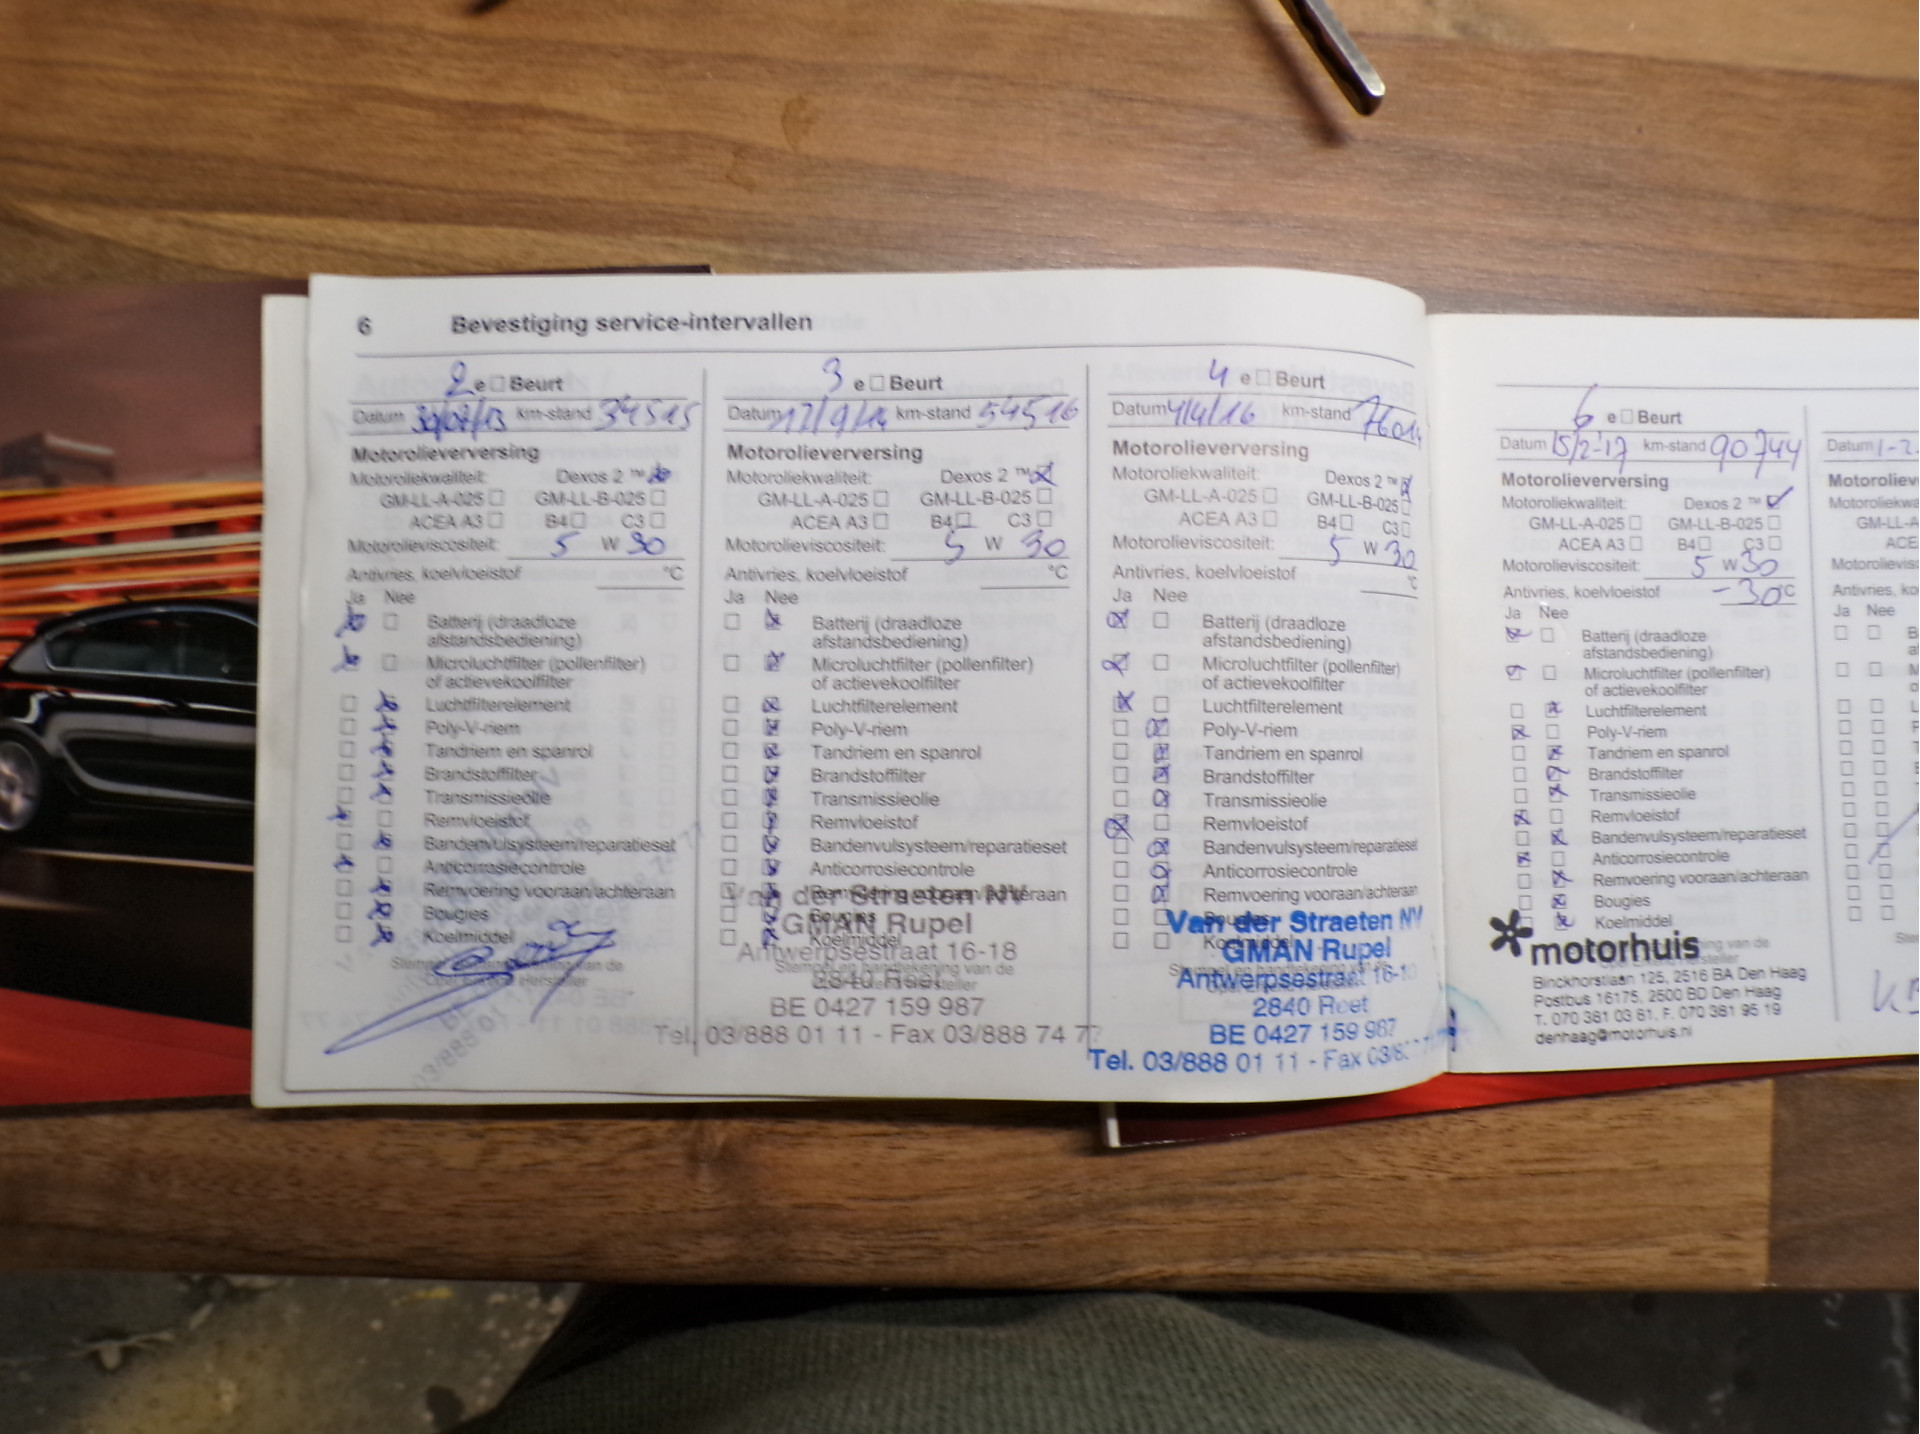 6 Bevestiging service-intervallen
2 e Beurt
Datum 30/07/13 km-stand 34515
Motorolieverversing
Motoroliekwaliteit: Dexos 2 ™
GM-LL-A-025 GM-LL-B-025
ACEA A3 B4 C3
Motorolieviscositeit: 5 W 30
Antivries, koelvloeistof °C
Ja Nee
Batterij (draadloze
afstandsbediening)
Microluchtfilter (pollenfilter)
of actievekoolfilter
Luchtfilterelement
Poly-V-riem
Tandriem en spanrol
Brandstoffilter
Transmissieolie
Remvloeistof
Bandenvulsysteem/reparatieset
Anticorrosiecontrole
Remvoering vooraan/achteraan
Bougies
Koelmiddel
3 e Beurt
Datum 17/9/14 km-stand 54516
Motorolieverversing
Motoroliekwaliteit: Dexos 2 ™
GM-LL-A-025 GM-LL-B-025
ACEA A3 B4 C3
Motorolieviscositeit: 5 W 30
Antivries, koelvloeistof °C
Ja Nee
Batterij (draadloze
afstandsbediening)
Microluchtfilter (pollenfilter)
of actievekoolfilter
Luchtfilterelement
Poly-V-riem
Tandriem en spanrol
Brandstoffilter
Transmissieolie
Remvloeistof
Bandenvulsysteem/reparatieset
Anticorrosiecontrole
Remvoering vooraan/achteraan
Bougies
Koelmiddel
Stempel en handtekening van de
Van der Straeten NV
GMAN Rupel
Antwerpsestraat 16-18
2840 Reet
BE 0427 159 987
Tel. 03/888 01 11 - Fax 03/888 74 77
4 e Beurt
Datum 4/4/16 km-stand 76014
Motorolieverversing
Motoroliekwaliteit: Dexos 2 ™
GM-LL-A-025 GM-LL-B-025
ACEA A3 B4 C3
Motorolieviscositeit: 5 W 30
Antivries, koelvloeistof °C
Ja Nee
Batterij (draadloze
afstandsbediening)
Microluchtfilter (pollenfilter)
of actievekoolfilter
Luchtfilterelement
Poly-V-riem
Tandriem en spanrol
Brandstoffilter
Transmissieolie
Remvloeistof
Bandenvulsysteem/reparatieset
Anticorrosiecontrole
Remvoering vooraan/achteraan
Bougies
Koelmiddel
Van der Straeten NV
GMAN Rupel
Antwerpsestraat 16-1
2840 Reet
BE 0427 159 987
Tel. 03/888 01 11 - Fax 03/8
6 e Beurt
Datum 15/2-17 km-stand 90744
Motorolieverversing
Motoroliekwaliteit: Dexos 2 ™
GM-LL-A-025 GM-LL-B-025
ACEA A3 B4 C3
Motorolieviscositeit: 5 W 30
Antivries, koelvloeistof -30°C
Ja Nee
Batterij (draadloze
afstandsbediening)
Microluchtfilter (pollenfilter)
of actievekoolfilter
Luchtfilterelement
Poly-V-riem
Tandriem en spanrol
Brandstoffilter
Transmissieolie
Remvloeistof
Bandenvulsysteem/reparatieset
Anticorrosiecontrole
Remvoering vooraan/achteraan
Bougies
Koelmiddel
motorhuis
Binckhorstlaan 125, 2516 BA Den Haag
Postbus 16175, 2500 BD Den Haag
T. 070 381 03 81, F. 070 381 95 19
denhaag@motorhuis.nl
Datum 1-2
Ja Nee